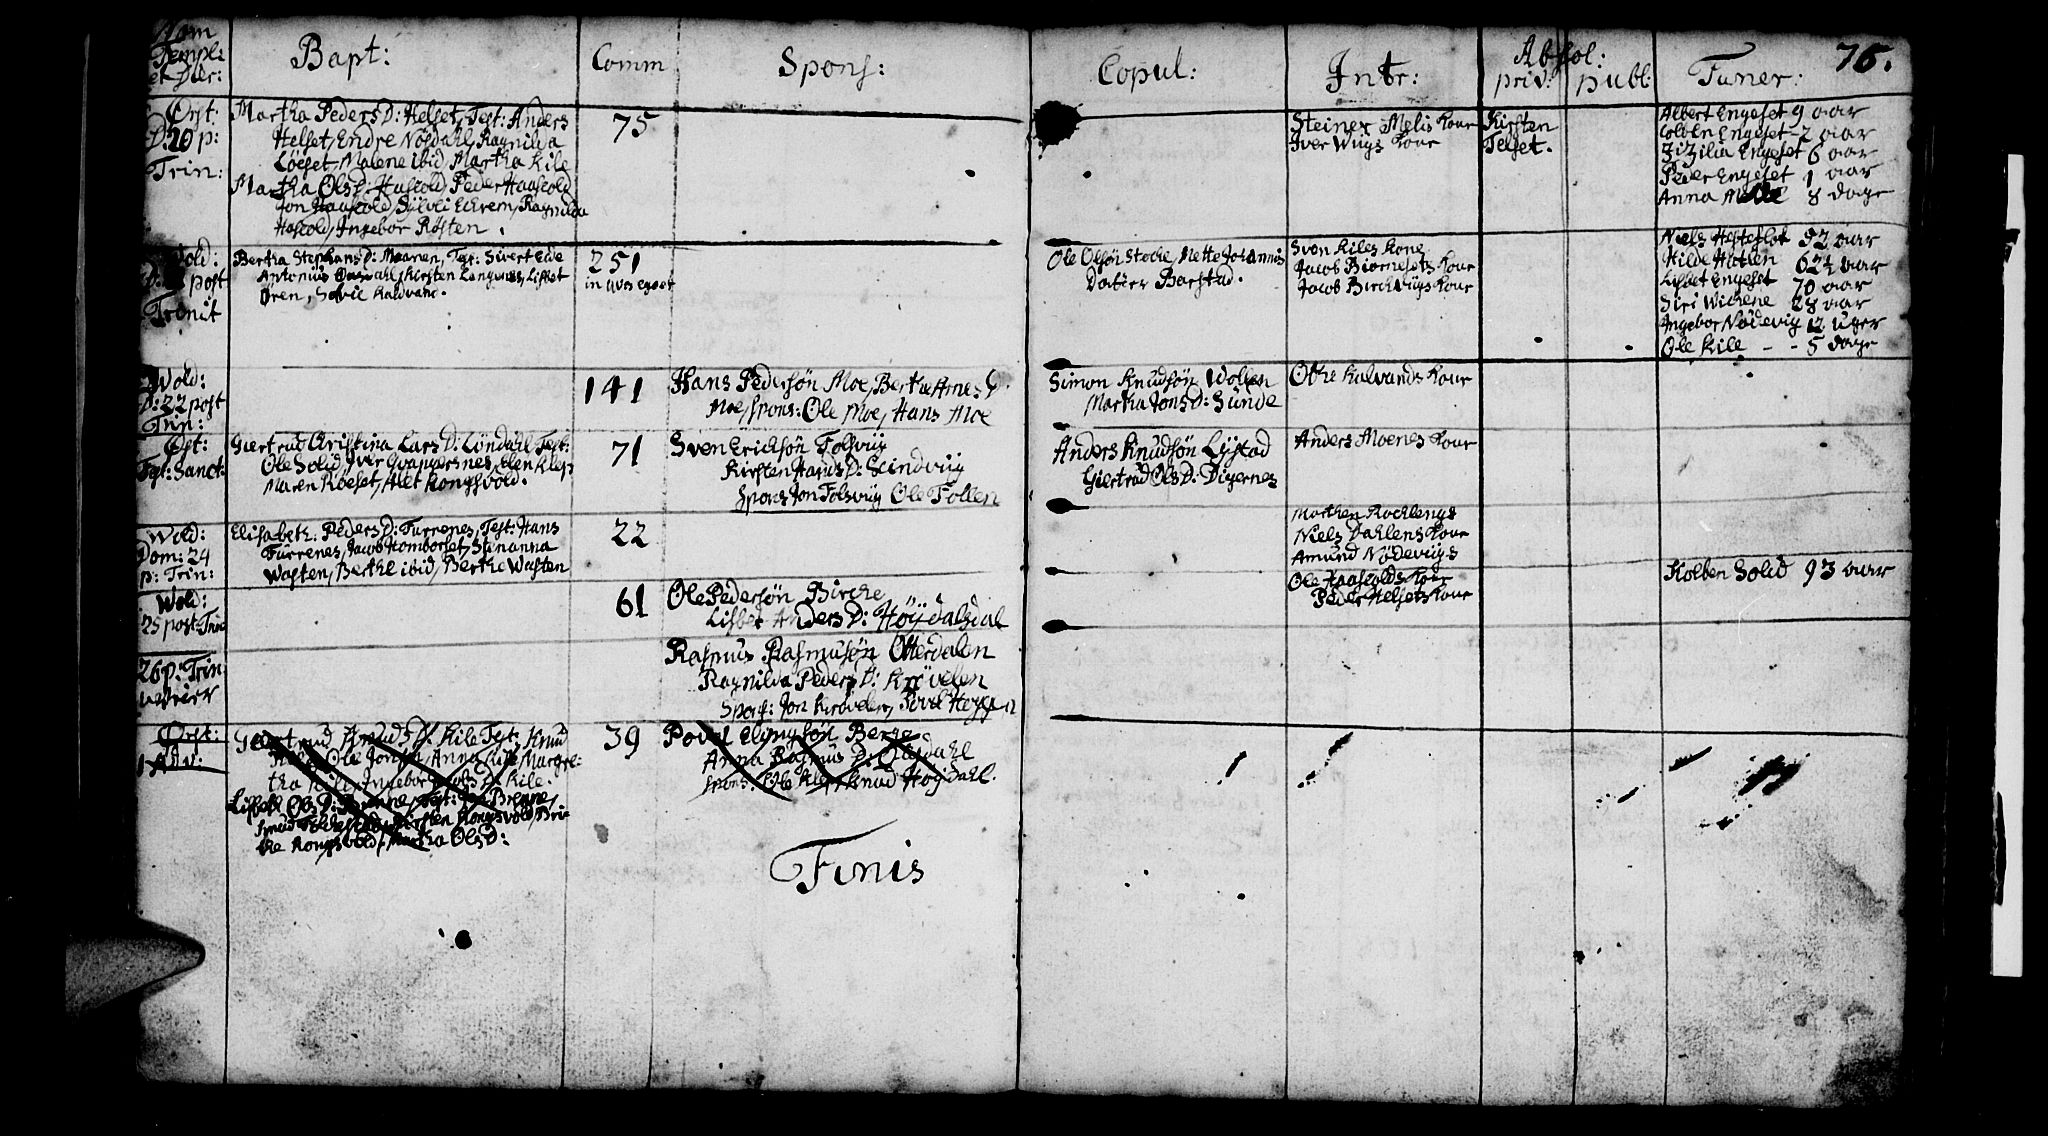 Nom
Templ:
et Dier:
Bapt:
Comm
Spons:
Copul:
Intr:
Absol:
priv:
publ:
Funer:
76.
Ørst:
D: 20 p:
Trin:
Martha Peders D: Helset, Test: Anders
Helset, Endre Nosdahl, Ragnilda
Løeset, Malene ibid, Martha Kile
Martha Ols D: Haskold, Peder Haaskold
Jon Haaskold, Sylvei Eckrem, Ragnilda
Haskold, Ingebor Røsten.
75
Steiner Melis Kone
Iver Wiigs Kone
Kirsten
Telset.
Albert Engeset 9 aar
Colben Engeset 2 aar
Zizilia Engeset 6 aar
Peder Engeset 1 aar
Anna 8 dage
Wold:
post
Trinit
Bertha Stephans D: Maanen, Tgt: Sivert Eide
Antonius Kirsten Langenes, Lisbet
Øren, Sovie Kaldvatn.
251
in uvos egoot
Ole Olsøn Stoche, Mette Johannis
Datter Barstad.
Sven Kiles Kone
Jacob Biørnesets Kone
Jacob Birchevigs Kone
Niels Hesteflot 92 aar
Hilde Hlotlen 62½ aar
Lisbet Engeset 70 aar
Siri Wichene 28 aar
Ingebor Nødevig 12 uger
Ole Kile - - 5 dage
Wold:
D: 22 post
Trin:
141
Hans Pedersøn Moe, Bertha Arnes D.
Moe, spons: Ole Moe, Hans Moe
Simon Knudsøn Wollen
Martha Jons D: Sunde
Othe Kalvands Kone
Øst:
Fgt: Sanct:
Giertrud Christina Lars D: Løndahl Test:
Ole Solid, Iver Gvappernes, Elen Klep
Maren Roeset, Alet Kongsvold.
71
Sven Ericksøn Folsviig
Kirsten Hands D: Scindviig
Spons Jon Folsviig Ole Follen
Anders Knudsøn Lystad
Giertrud Ols D: Digernes
Anders Moenes Kone
Wold:
Dom: 24
p: Trin:
Elisabeth. Peders D: Furrenes, Test: Hans
Furrenes, Jacob Homborset, Stenanna
Wasten, Berthe ibid, Berthe Wasten
22
Morthen Rochlengs
Niels Dahlens Kone
Amund Nødeviigs
Wold:
25 post Trin
61
Ole Pedersøn Birche
Lisbet Anders D: Høydalsdal
Ole Haaskolds Kone
Peder Helsets Kone
Kolben Solid 93 aar
26 p: Trin:
Rasmus Rasmusøn Otterdalen
Ragnilda Peders D: Krøvelen
Spons: Jon Krøvelen, Povel Heggen
Ørst:
1 Adv:
Giertrud Knuds D: Kile Tgt: Knud
Ole Jons, Anna Kile, Margre-
tha Kile, Ingebor Kile.
Lisbet Ols D: Brenne, Tgt: Brenne,
Knud Kirsten Kongsvold, Bri-
the Kongsvold, Martha Ols D:
39
Povel Elingsøn Berge
Anna Rasmus D:
spons: Ole Klep, Knud Høydahl.
Finis